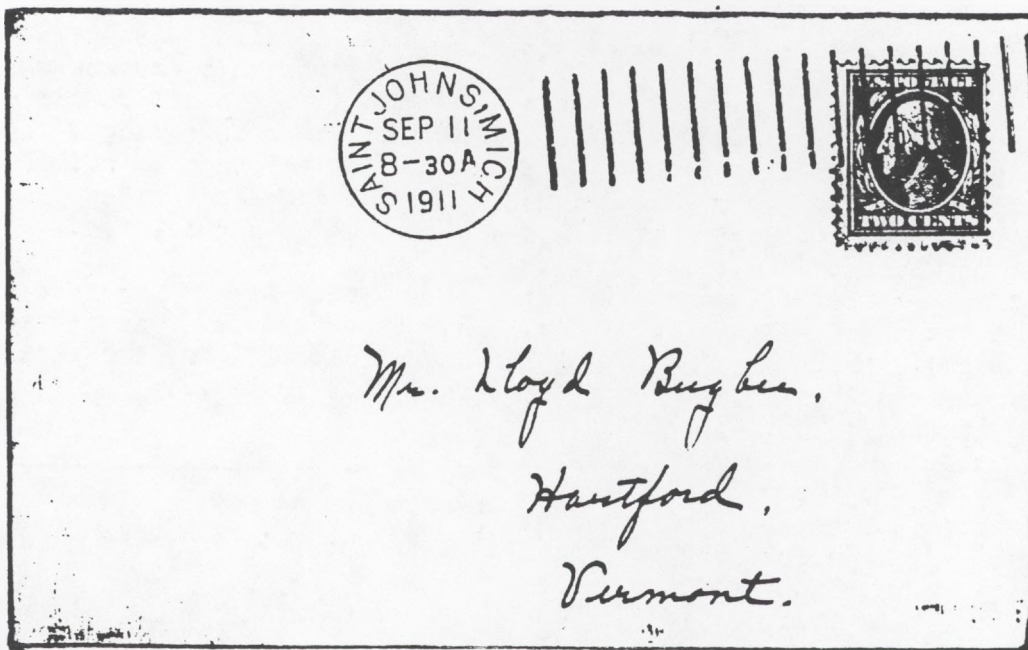 SAINT JOHNS, MICH
SEP 11
8-30A
1911
TWO CENTS
Mr. Lloyd Bugbee.
Hartford,
Vermont.